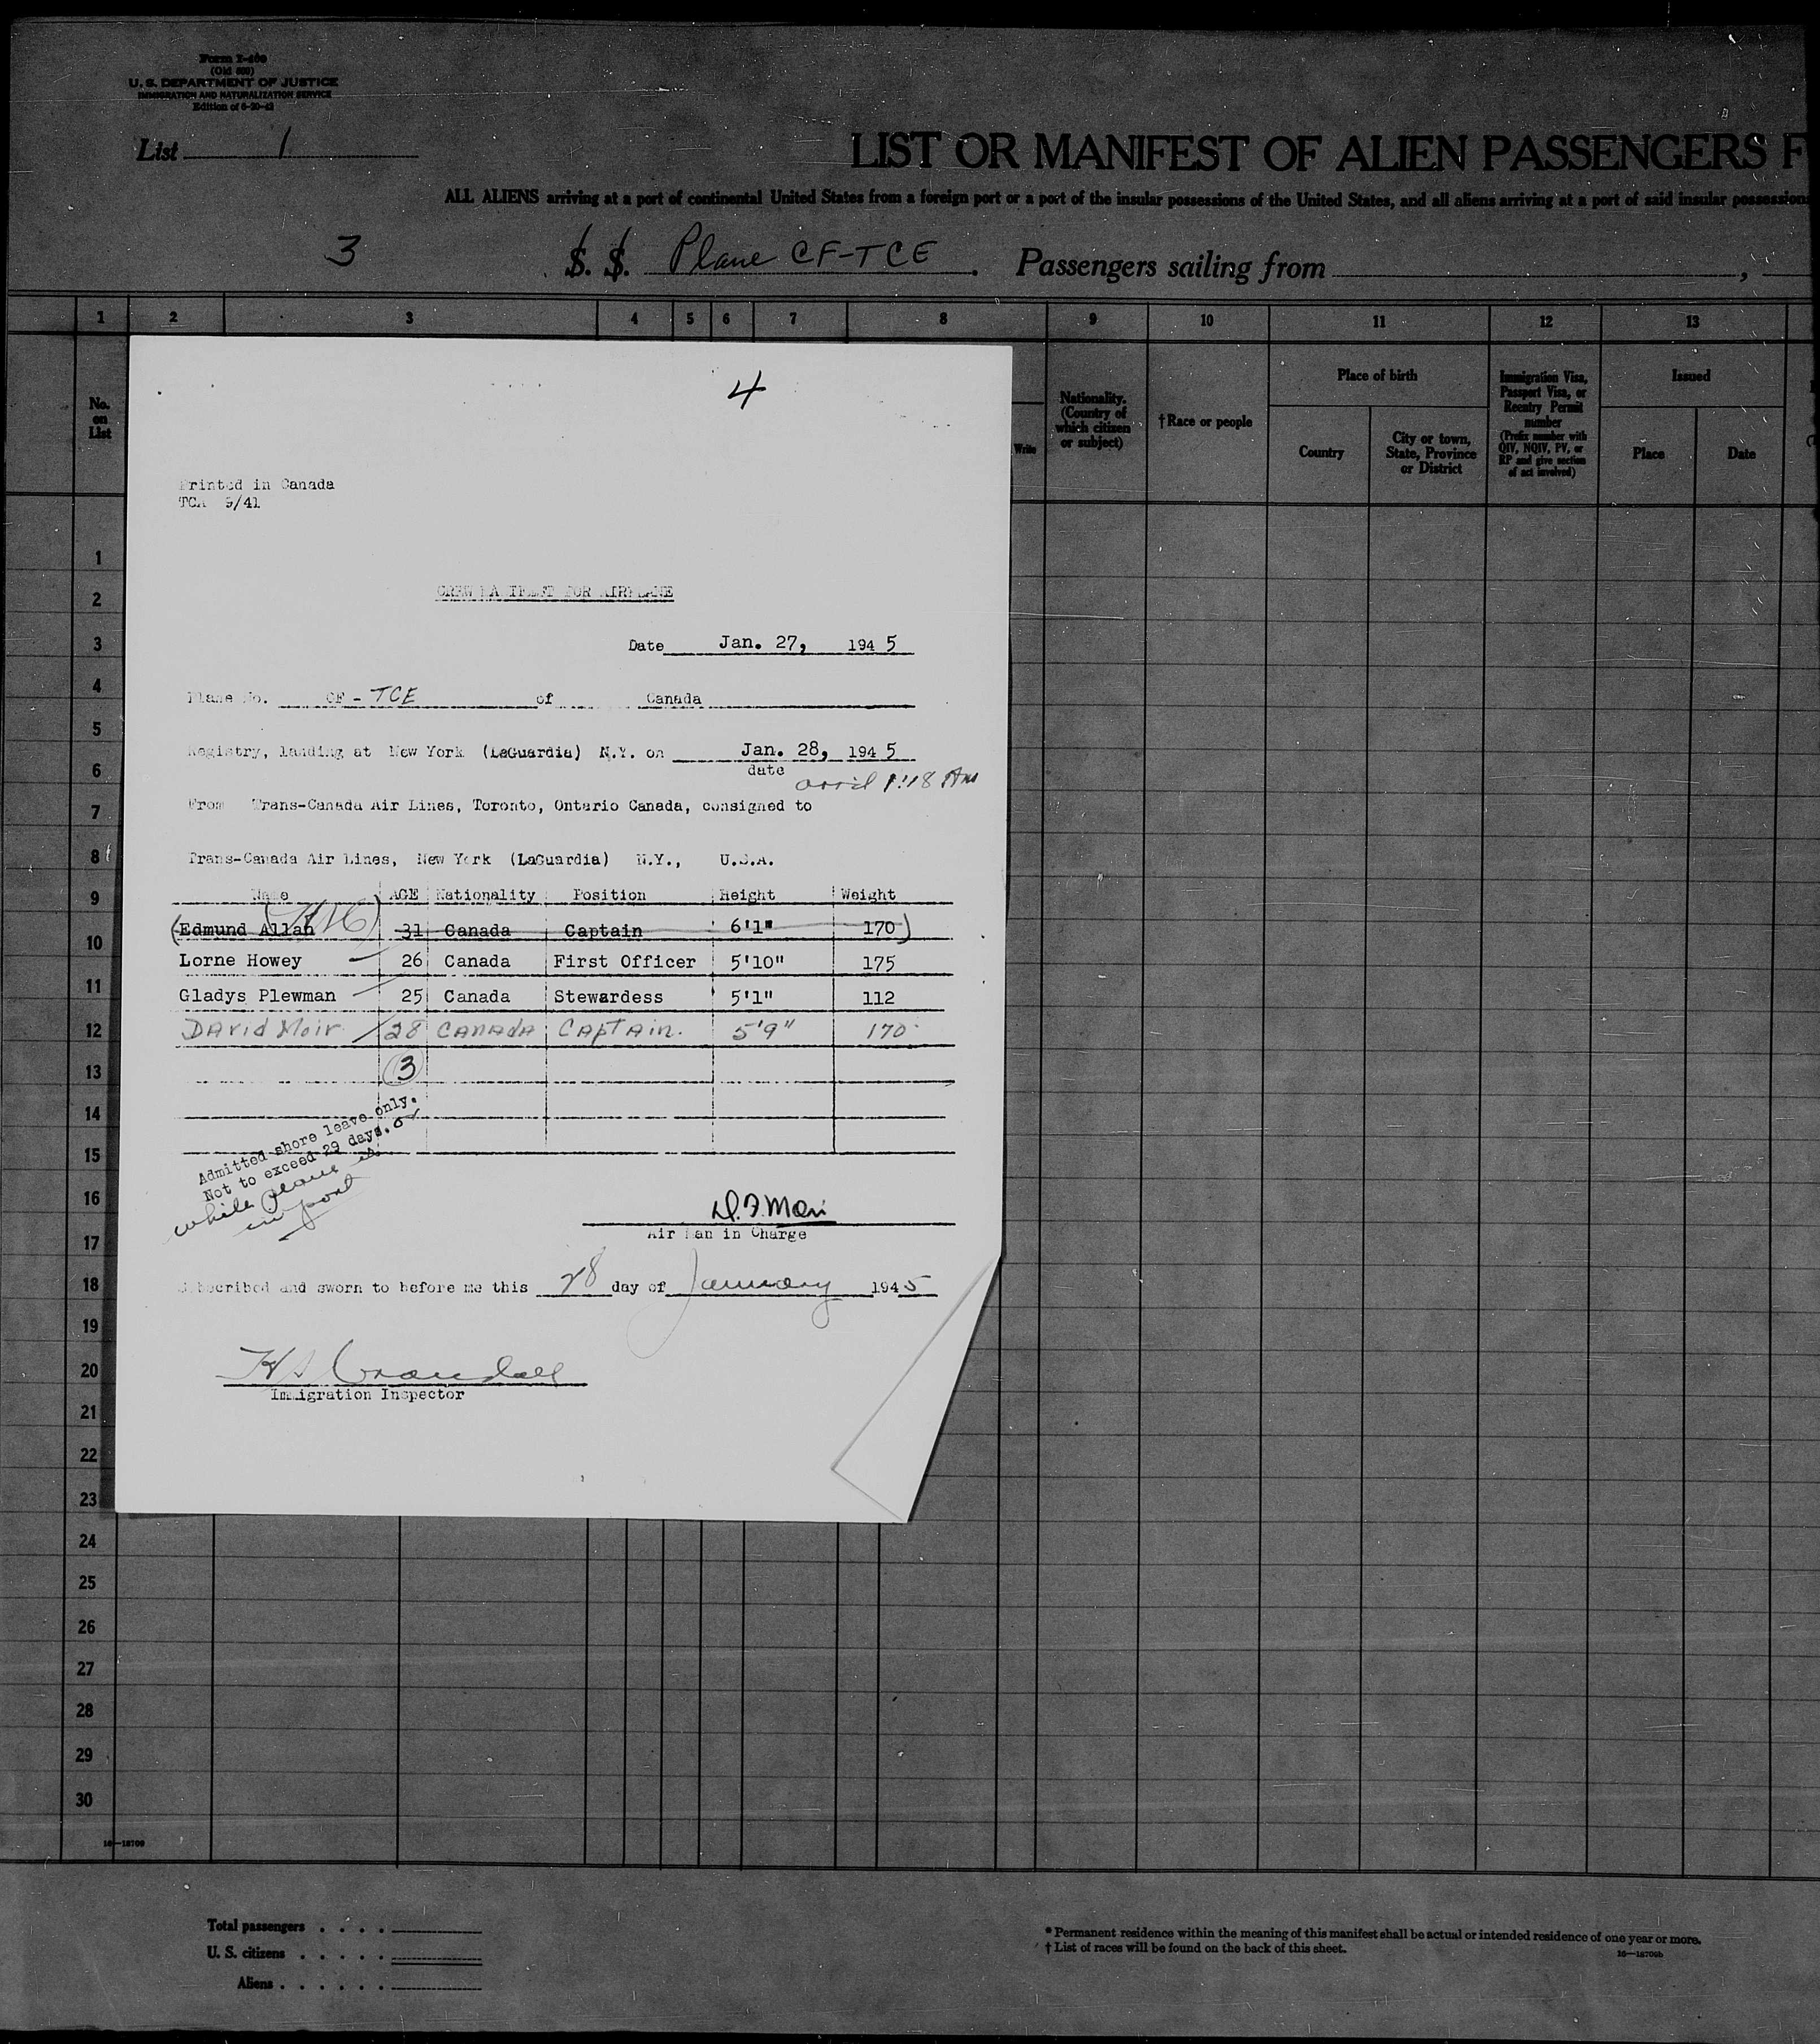 Form I-
(Old )
U. S. DEPARTMENT OF JUSTICE
IMMIGRATION AND NATURALIZATION SERVICE
Edition of
List 1
LIST OR MANIFEST OF ALIEN PASSENGERS F
ALL ALIENS arriving at a port of continental United States from a foreign port or a port of the insular possessions of the United States, and all aliens arriving at a port of said insular possessions
3 S. S. Plane CF-TCE. Passengers sailing from ,
1 2 3 4 5 6 7 8 9 10 11 12 13
No. on List
Write
Nationality. (Country of which citizen or subject)
† Race or people
Place of birth
Country
City or town, State, Province or District
Immigration Visa, Passport Visa, or Reentry Permit number
(Prefix number with QIV, NQIV, PV, or RP and give section of act involved)
Issued
Place
Date
4
Printed in Canada
TCA 9/41
CREW MANIFEST FOR AIRPLANE
Date Jan. 27, 194 5
Plane No. CF - TCE of Canada
Registry, landing at New York (LaGuardia) N.Y. on Jan. 28, 194 5
date
1:18 AM
From Trans-Canada Air Lines, Toronto, Ontario Canada, consigned to
Trans-Canada Air Lines, New York (LaGuardia) N.Y., U.S.A.
Name AGE Nationality Position Height Weight
(Edmund Allan 31 Canada Captain 6'1" 170)
Lorne Howey 26 Canada First Officer 5'10" 175
Gladys Plewman 25 Canada Stewardess 5'1" 112
David Moir 28 CANADA CAPTAIN. 5'9" 170
3
Admitted shore leave only.
Not to exceed 29 days. or
while plane is
in port
Air Man in Charge
Subscribed and sworn to before me this 28 day of January 1945
Crandall
Immigration Inspector
1
2
3
4
5
6
7
8
9
10
11
12
13
14
15
16
17
18
19
20
21
22
23
24
25
26
27
28
29
30
16—18709
Total passengers . . . .
U. S. citizens . . . . .
Aliens . . . . . .
* Permanent residence within the meaning of this manifest shall be actual or intended residence of one year or more.
† List of races will be found on the back of this sheet.
16—18709b